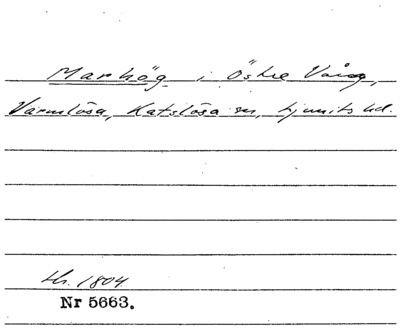 Marhög i Östre Vång,
Värmlösa, Katslösa sn, Ljunits hd.
Nr 5663.